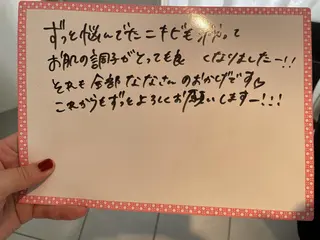 ずっと悩んでたニキビも治って
お肌の調子がとっても良くなりましたー!!
それも全部ななさんのおかげです♡
これからもずっとよろしくお願いしますー!!!